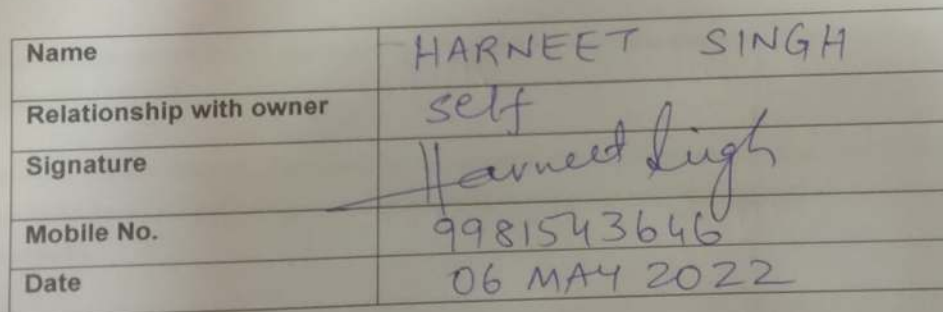 Name HARNEET SINGH
Relationship with owner self
Signature Harneet Singh
Mobile No. 9981543646
Date 06 MAY 2022